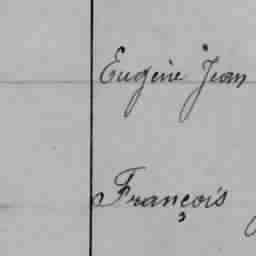 Eugène Jean
François